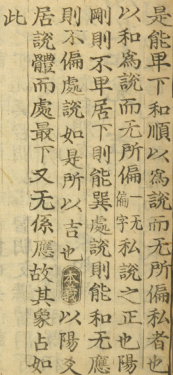 是能卑下和順以爲說而无所偏私者也
以和爲說而无所偏一无偏字私說之正也陽
剛則不卑居下則能巽處說則能和无應
則不偏處說如是所以吉也本義以陽爻
居說體而處最下又无係應故其象占如
此